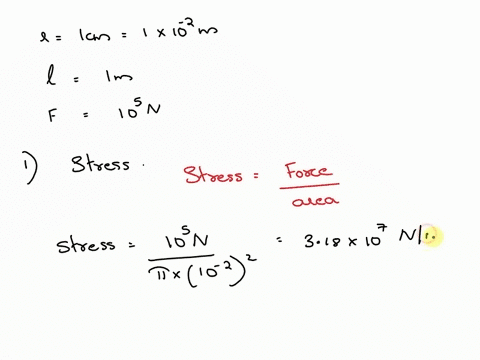 r = 1cm = 1 × 10⁻² m
l = 1m
F = 10⁵ N
1) Stress.
Stress = Force / area
Stress = 10⁵N / π × (10⁻²)² = 3.18 × 10⁷ N/